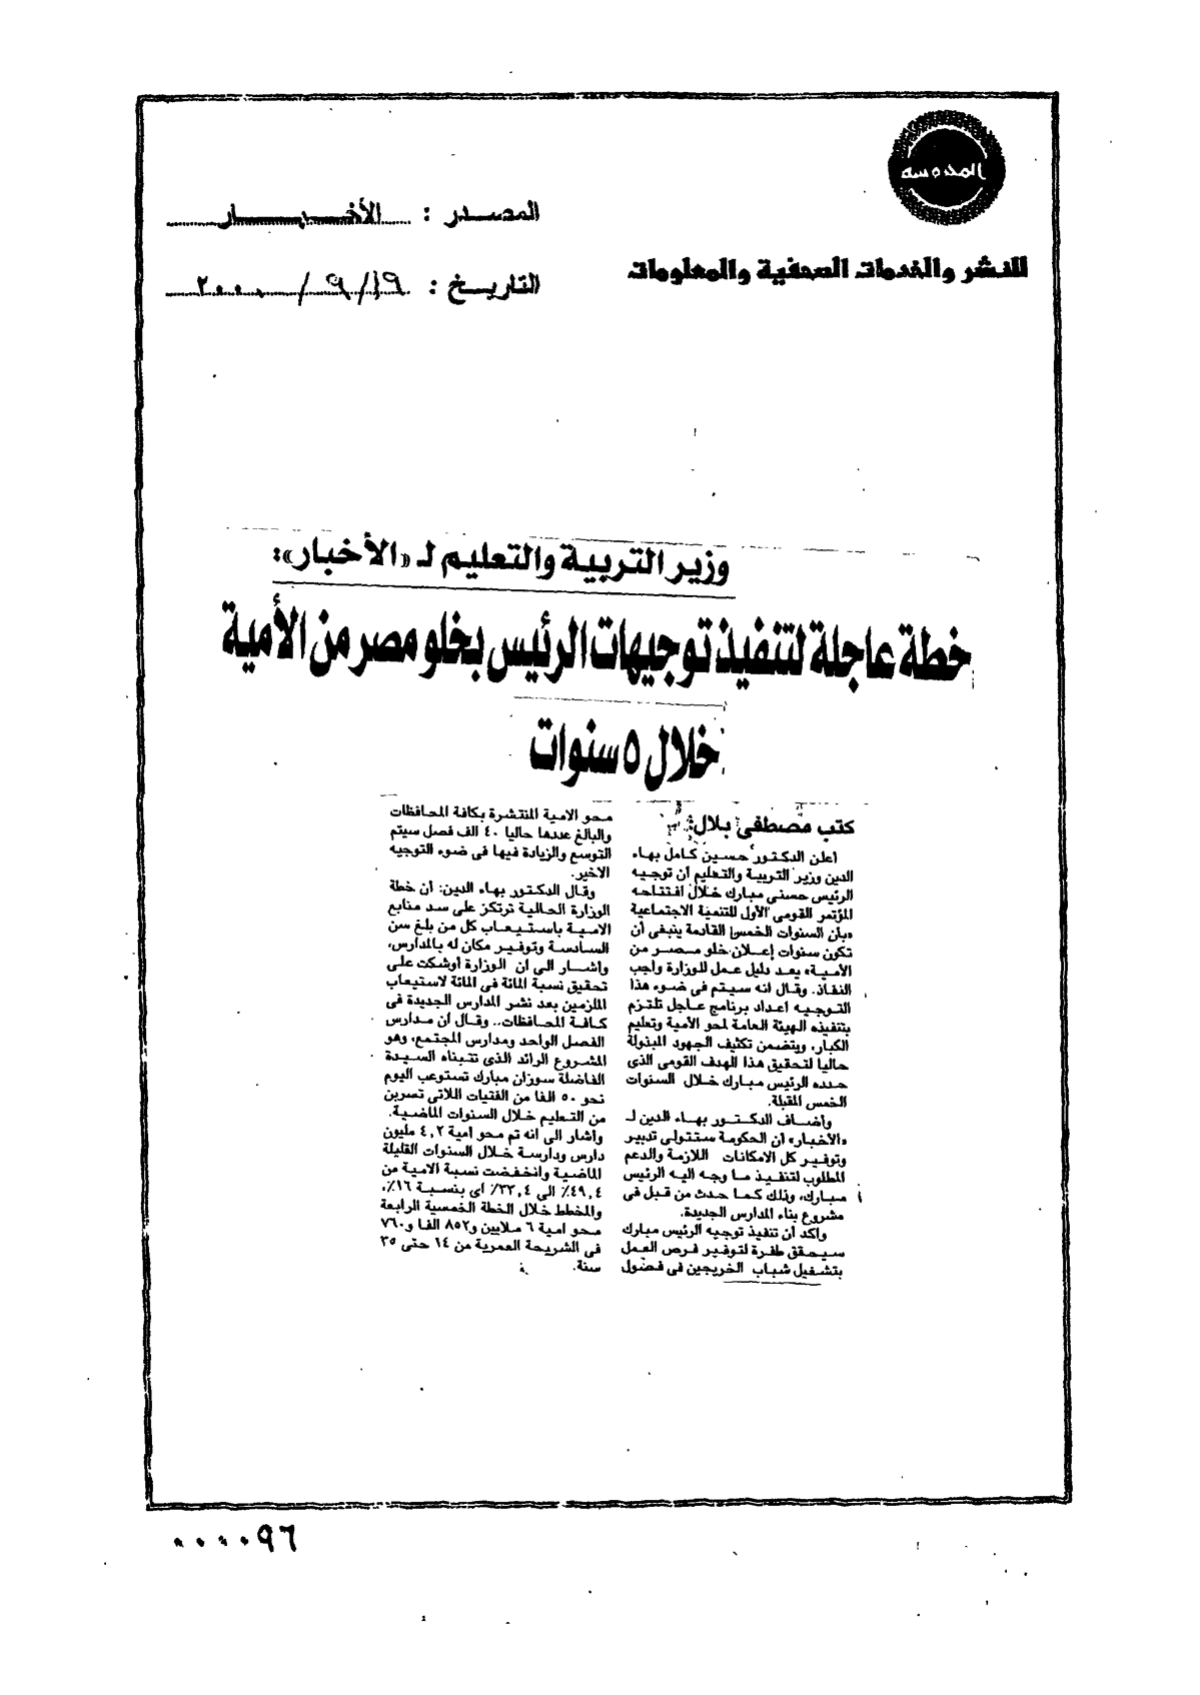 المدرسه
للنشر والخدمات الصحفية والمعلومات
المصدر : الأخبار
التاريخ : ١٩/٩/٢٠٠٠
وزير التربية والتعليم لـ «الأخبار»:
خطة عاجلة لتنفيذ توجيهات الرئيس بخلو مصر من الأمية
خلال ٥ سنوات
كتب مصطفى بلال:
أعلن الدكتور حسين كامل بهاء
الدين وزير التربية والتعليم أن توجيه
الرئيس حسنى مبارك خلال افتتاحه
المؤتمر القومى الأول للتنمية الاجتماعية
«بأن السنوات الخمس القادمة ينبغى أن
تكون سنوات إعلان خلو مصر من
الأمية» يعد دليل عمل للوزارة واجب
النفاذ. وقال انه سيتم فى ضوء هذا
التوجيه اعداد برنامج عاجل تلتزم
بتنفيذه الهيئة العامة لمحو الأمية وتعليم
الكبار، ويتضمن تكثيف الجهود المبذولة
حاليا لتحقيق هذا الهدف القومى الذى
حدده الرئيس مبارك خلال السنوات
الخمس المقبلة.
وأضاف الدكتور بهاء الدين لـ
«الأخبار» أن الحكومة ستتولى تدبير
وتوفير كل الامكانات اللازمة والدعم
المطلوب لتنفيذ ما وجه اليه الرئيس
مبارك، وذلك كما حدث من قبل فى
مشروع بناء المدارس الجديدة.
واكد أن تنفيذ توجيه الرئيس مبارك
سيحقق طفرة لتوفير فرص العمل
بتشغيل شباب الخريجين فى فصول
محو الامية المنتشرة بكافة المحافظات
والبالغ عددها حاليا ٤٠ الف فصل سيتم
التوسع والزيادة فيها فى ضوء التوجيه
الاخير.
وقال الدكتور بهاء الدين: أن خطة
الوزارة الحالية ترتكز على سد منابع
الامية باستيعاب كل من بلغ سن
السادسة وتوفير مكان له بالمدارس،
وأشار الى ان الوزارة أوشكت على
تحقيق نسبة المائة فى المائة لاستيعاب
الملزمين بعد نشر المدارس الجديدة فى
كافة المحافظات.. وقال أن مدارس
الفصل الواحد ومدارس المجتمع، وهو
المشروع الرائد الذى تتبناه السيدة
الفاضلة سوزان مبارك تستوعب اليوم
نحو ٥٠ الفا من الفتيات اللاتى تسربن
من التعليم خلال السنوات الماضية.
وأشار الى انه تم محو امية ٤,٢ مليون
دارس ودارسة خلال السنوات القليلة
الماضية وانخفضت نسبة الامية من
٤٩,٤٪ الى ٣٣,٤٪ اى بنسبة ١٦٪،
والمخطط خلال الخطة الخمسية الرابعة
محو امية ٦ ملايين و٨٥٢ الفا و٧٦٠
فى الشريحة العمرية من ١٤ حتى ٣٥
سنة.
٠٠٠٠٩٦